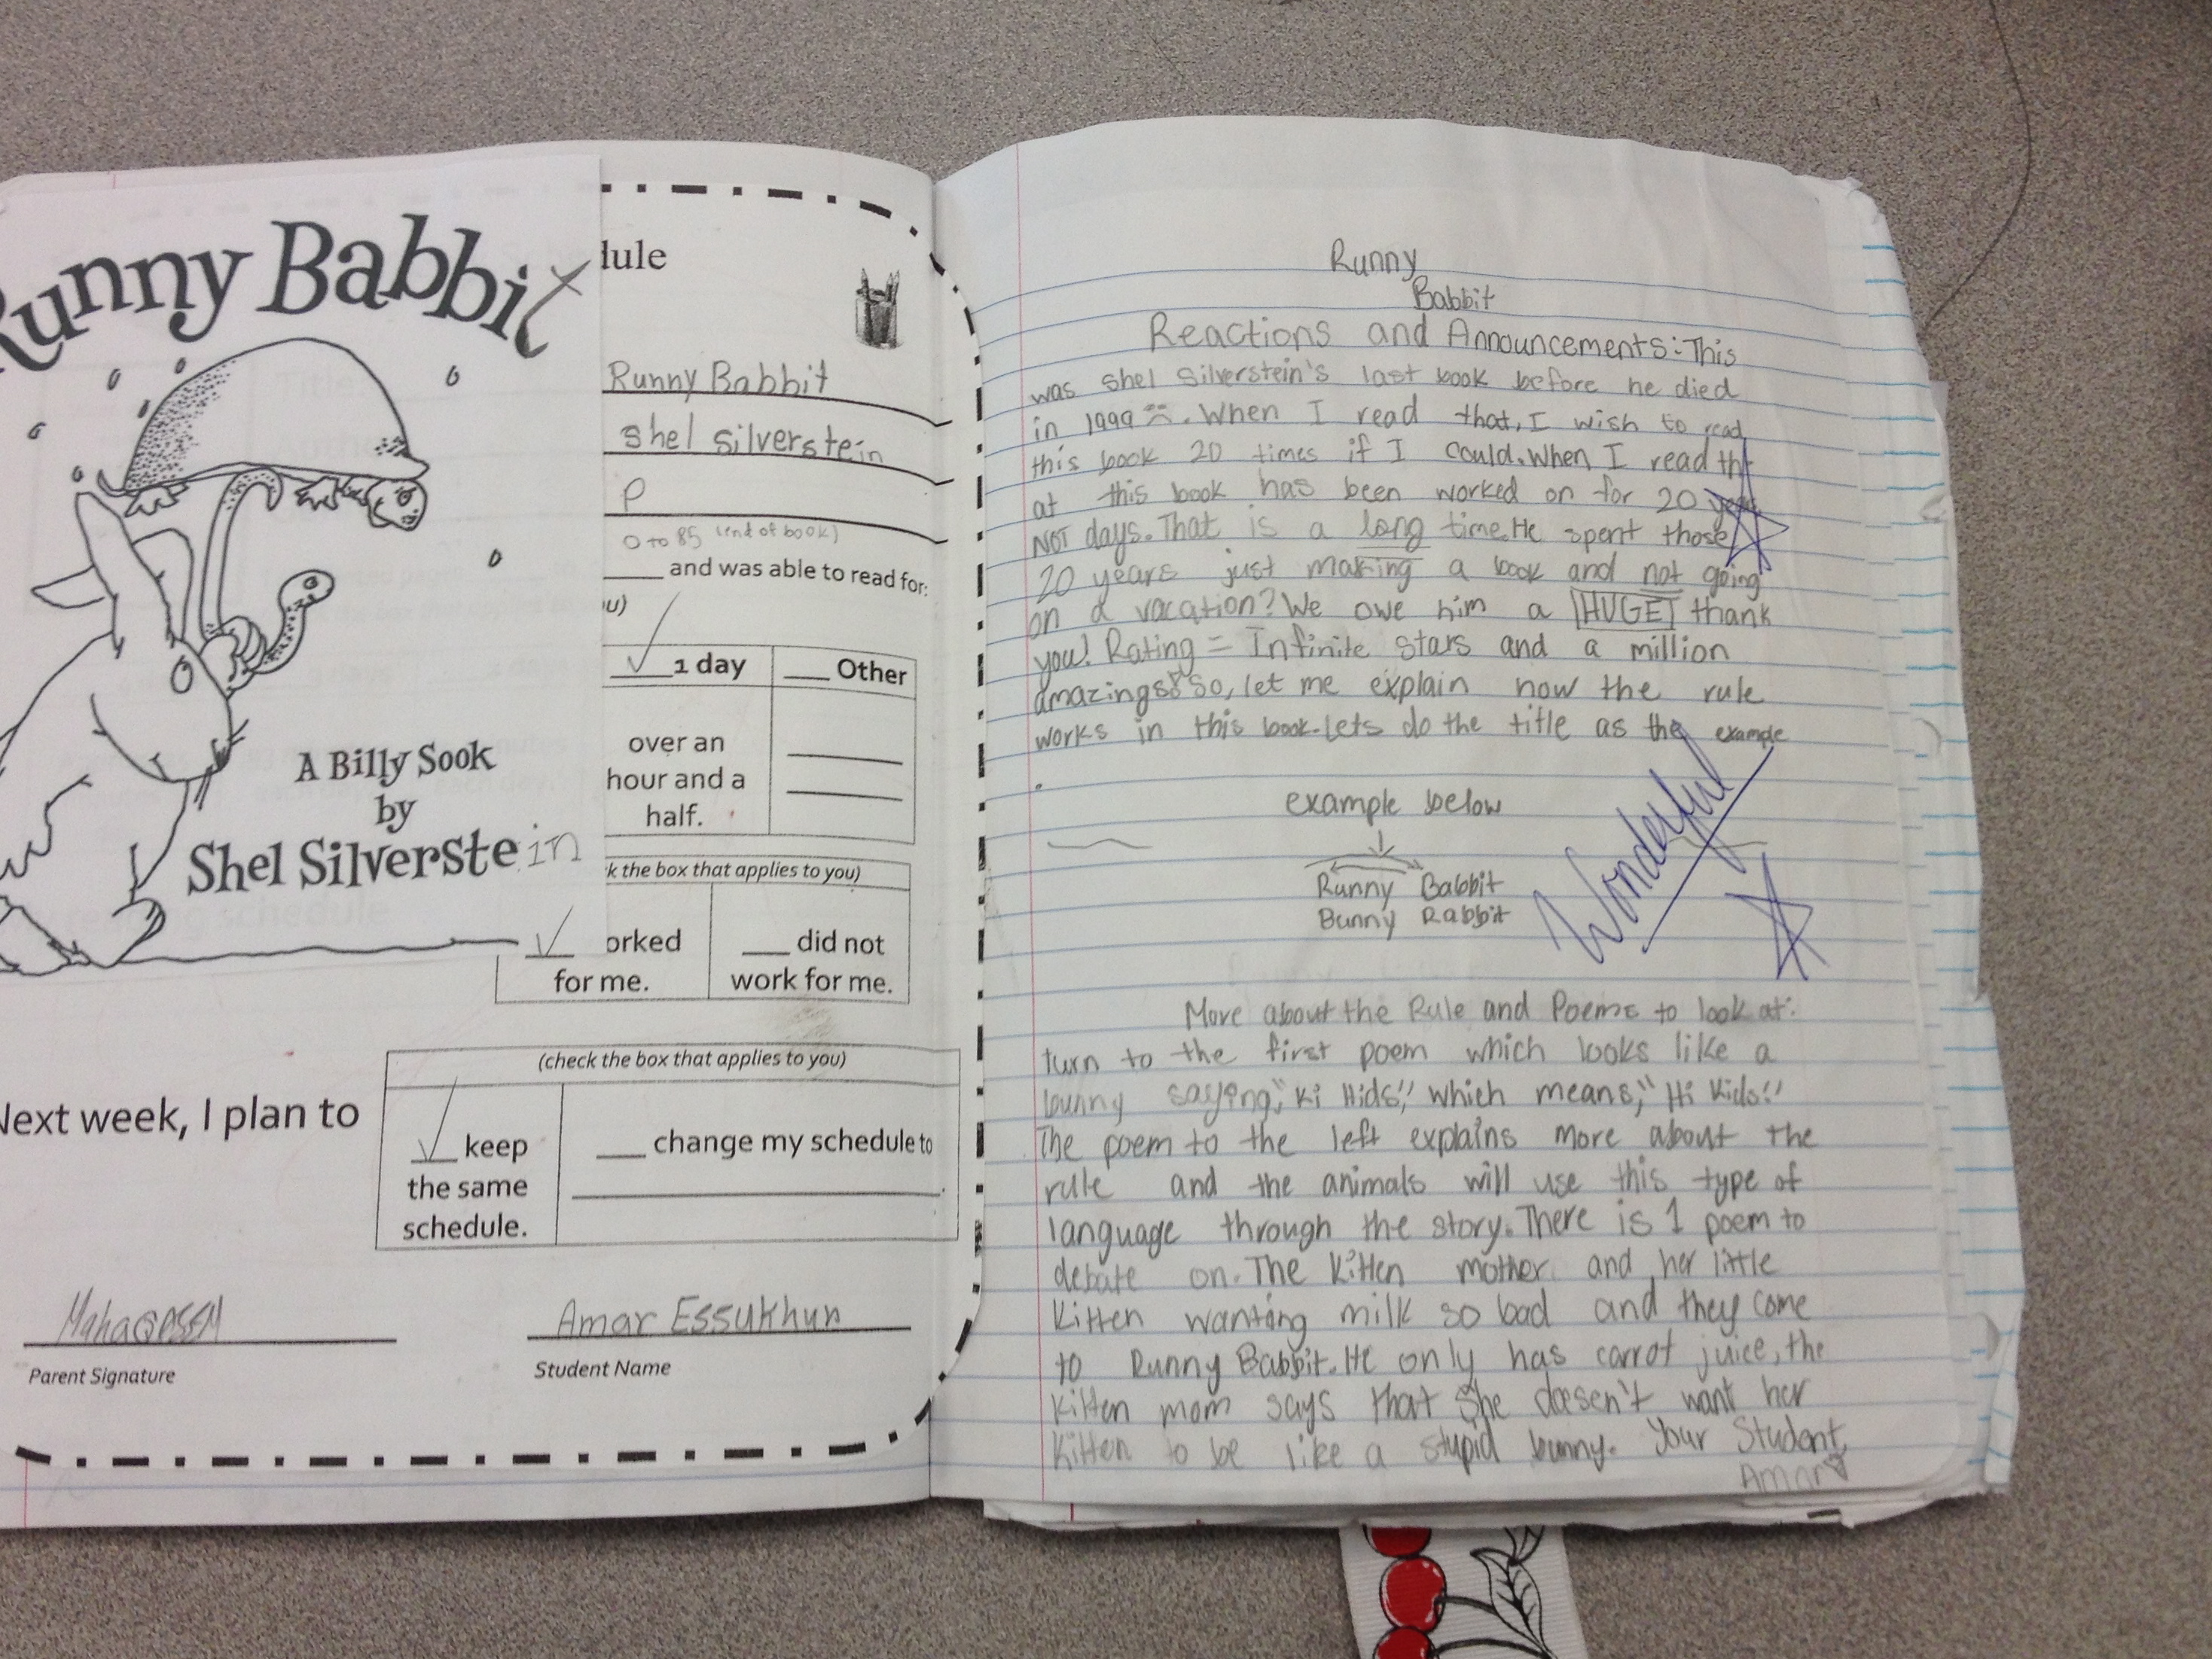 Runny Babbit
A Billy Sook
by
Shel Silverstein
dule
Runny Babbit
shel silverstein
P
0 to 85 (end of book)
and was able to read for:
u)
1 day
Other
over an
hour and a
half.
k the box that applies to you)
orked
for me.
did not
work for me.
(check the box that applies to you)
Next week, I plan to
keep
the same
schedule.
change my schedule to
Amar Essukhun
Parent Signature
Student Name
Runny
Babbit
Reactions and Announcements: This
was shel Silverstein's last book before he died
in 1999. When I read that, I wish to read
this book 20 times if I could. When I read th
at this book has been worked on for 20 years
NOT days. That is a long time. He spent those
20 years just making a book and not going
on a vacation? We owe him a HUGE thank
you! Rating = Infinite stars and a million
amazings! So, let me explain how the rule
works in this book. Lets do the title as the example
.
example below
Runny Babbit
Bunny Rabbit
Wonderful
More about the Rule and Poems to look at:
turn to the first poem which looks like a
bunny saying, "Ki Hids!" which means, "Hi Kids!"
The poem to the left explains more about the
rule and the animals will use this type of
language through the story. There is 1 poem to
debate on. The Kitten mother and her little
Kitten wanting milk so bad and they come
to Runny Babbit. He only has carrot juice, the
Kitten mom says that she doesn't want her
Kitten to be like a stupid bunny. Your Student,
Amar